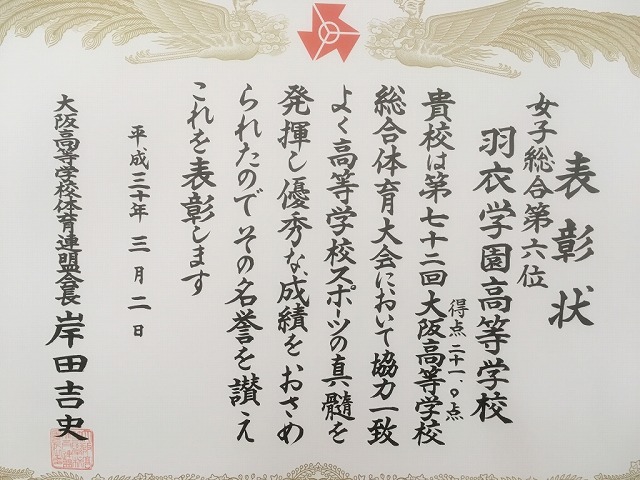 表彰状
女子総合第六位
得点二十一.〇点
羽衣学園高等学校
貴校は第七十二回大阪高等学校
総合体育大会において協力一致
よく高等学校スポーツの真髄を
発揮し優秀な成績をおさめ
られたのでその名誉を讃え
これを表彰します
平成三十年三月二日
大阪高等学校体育連盟会長 岸田吉史